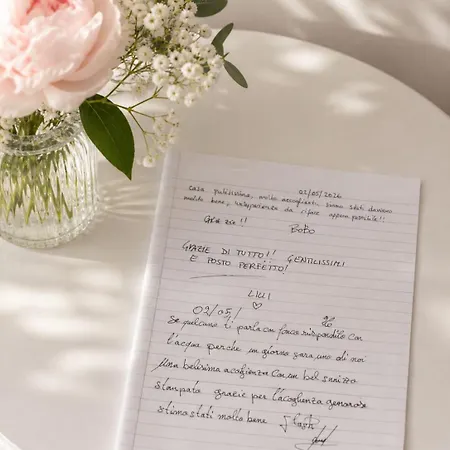 casa pulitissima, molto accoglienti, siamo stati davvero
molto bene, da rifare appena possibile!!
Grazie!!
02/05/2026
BoBo
GRAZIE DI TUTTO!! GENTILISSIMI
E POSTO PERFETTO!
LILLI
02/05/26
Se qulcuno ti parla con fuoco rispondilo con
l'acqua perche un giorno sara uno di noi
Una belisima accoglienza con un bel sorrizo
stampato grazie per l'acoglienza generose
stimo stati molto bene